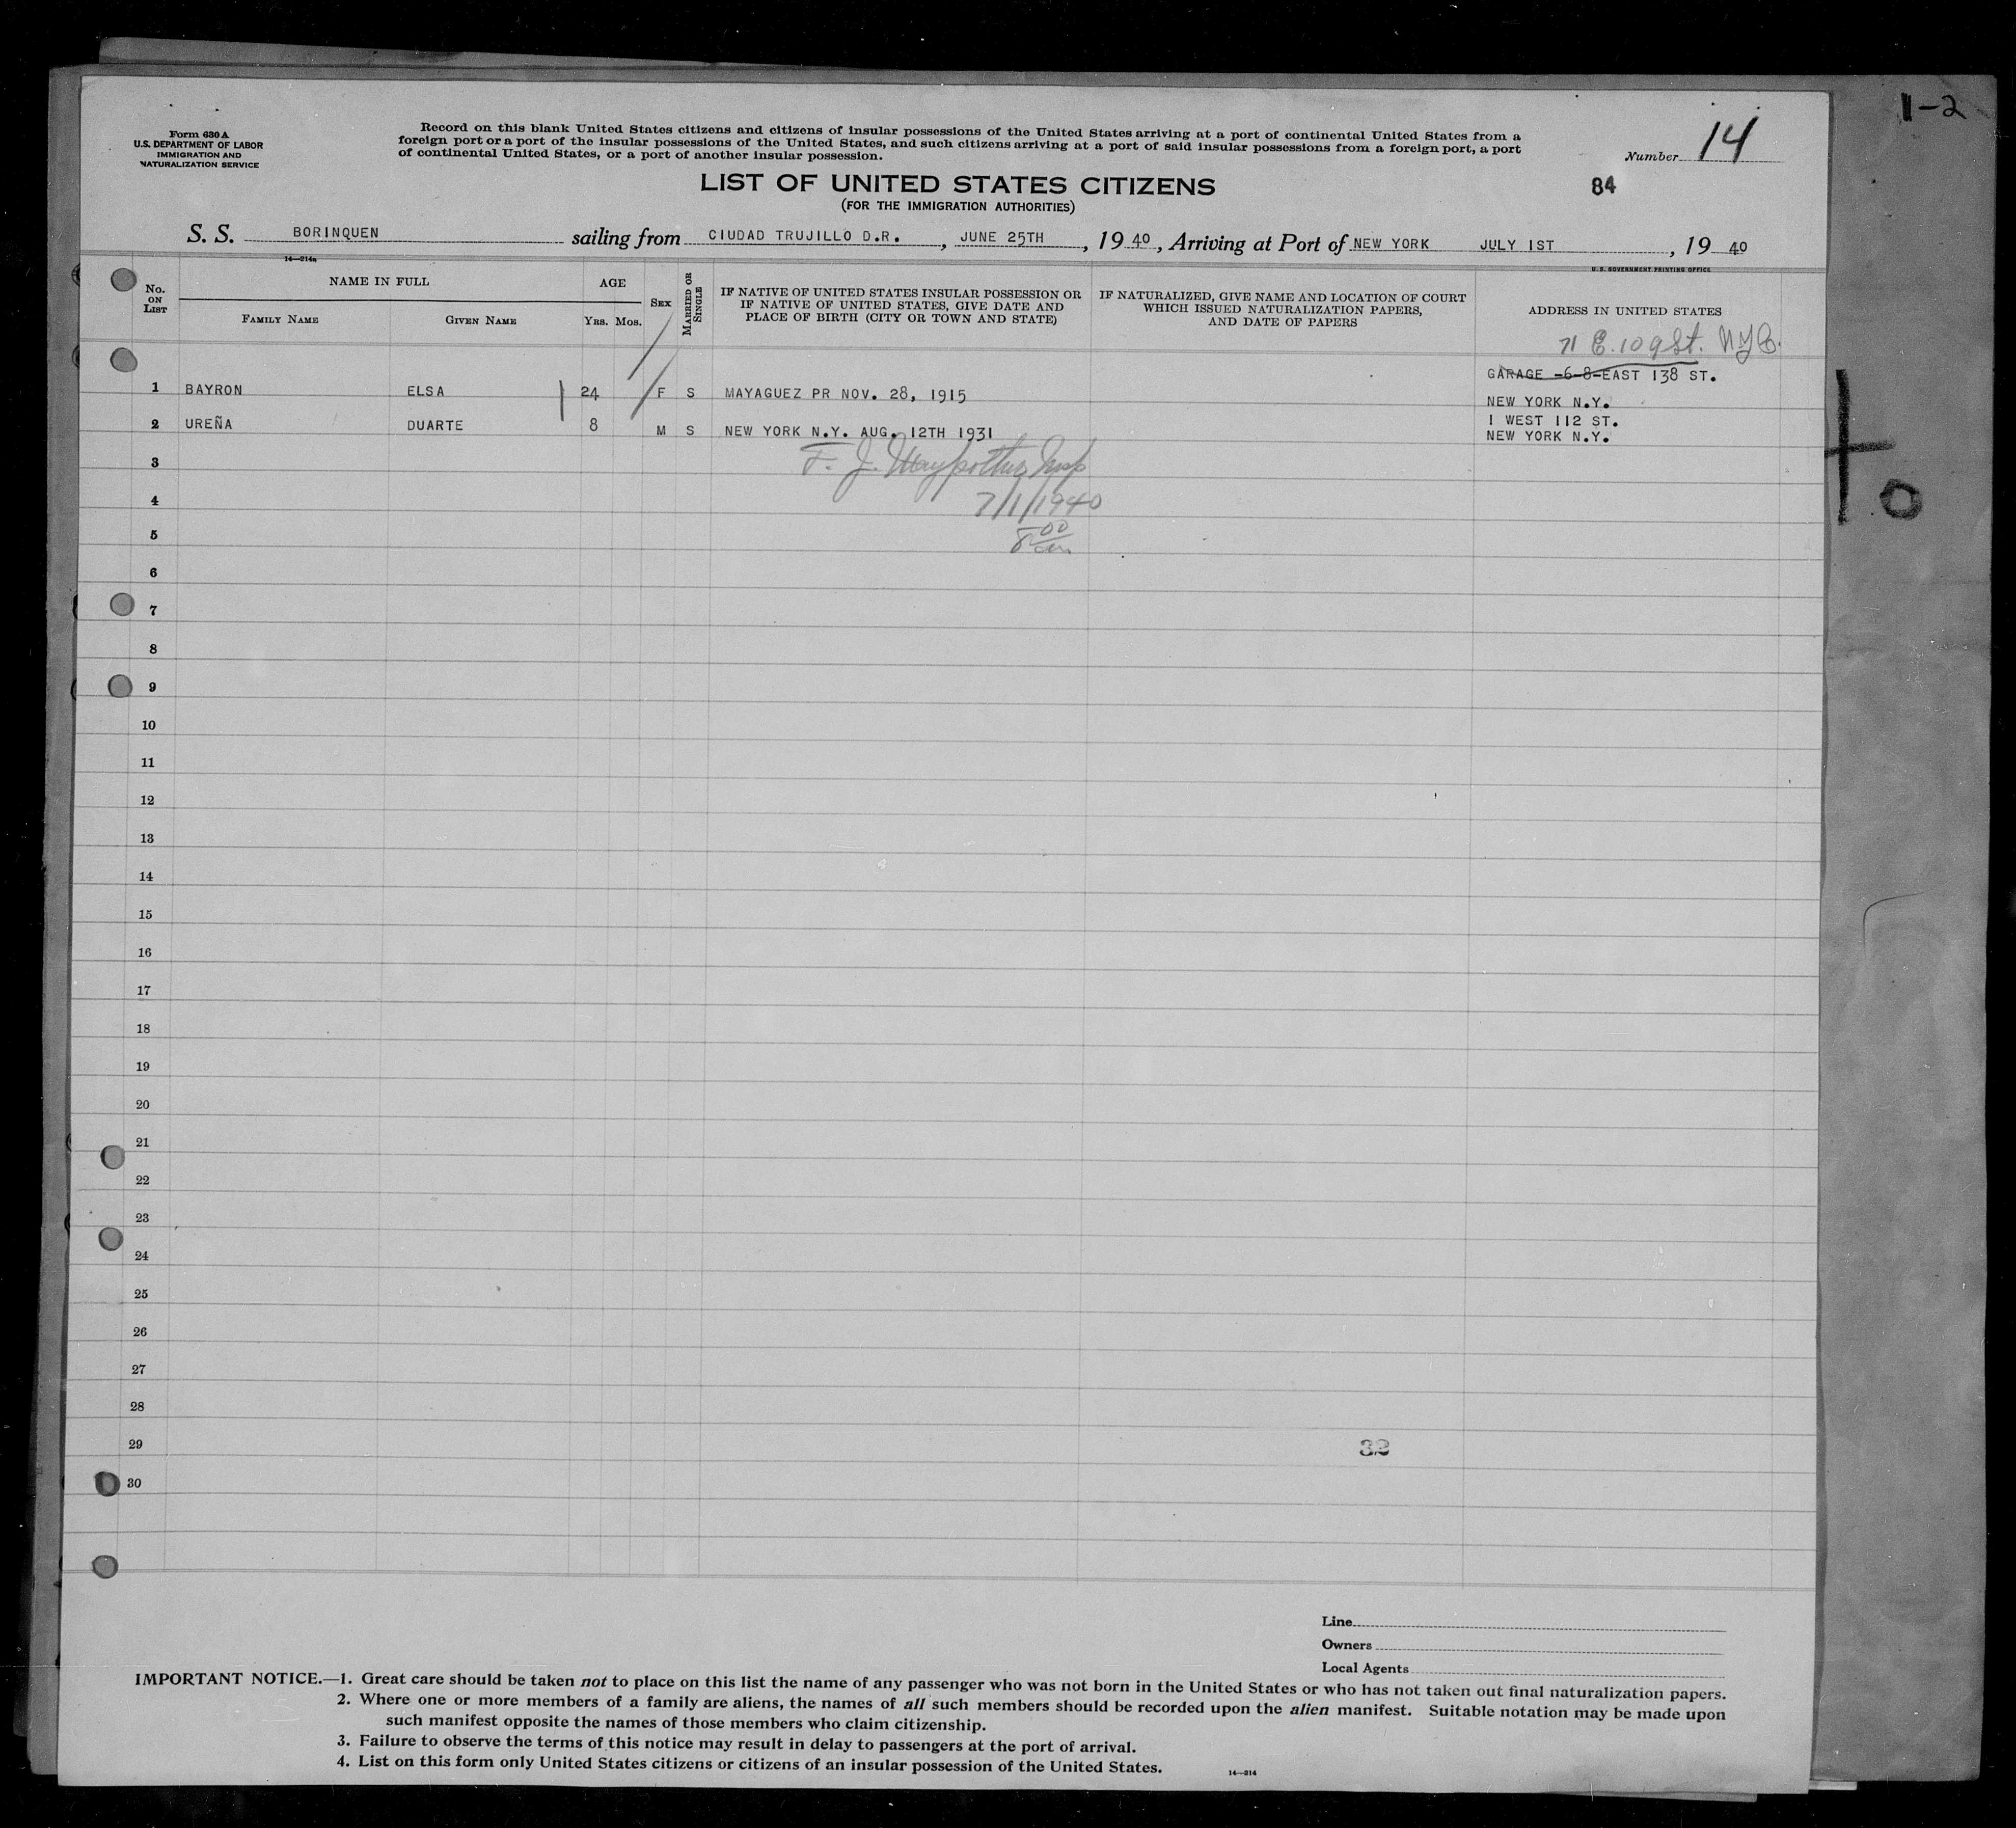 1-2
Form 630 A
U.S. DEPARTMENT OF LABOR
IMMIGRATION AND
NATURALIZATION SERVICE
Record on this blank United States citizens and citizens of insular possessions of the United States arriving at a port of continental United States from a
foreign port or a port of the insular possessions of the United States, and such citizens arriving at a port of said insular possessions from a foreign port, a port
of continental United States, or a port of another insular possession.
Number 14
LIST OF UNITED STATES CITIZENS
84
(FOR THE IMMIGRATION AUTHORITIES)
S. S. BORINQUEN sailing from CIUDAD TRUJILLO D.R. , JUNE 25TH , 19 40 , Arriving at Port of NEW YORK JULY 1ST , 19 40
14—214a
U.S. GOVERNMENT PRINTING OFFICE
No. ON LIST
NAME IN FULL
FAMILY NAME
GIVEN NAME
AGE
YRS. MOS.
SEX
MARRIED OR SINGLE
IF NATIVE OF UNITED STATES INSULAR POSSESSION OR
IF NATIVE OF UNITED STATES, GIVE DATE AND
PLACE OF BIRTH (CITY OR TOWN AND STATE)
IF NATURALIZED, GIVE NAME AND LOCATION OF COURT
WHICH ISSUED NATURALIZATION PAPERS,
AND DATE OF PAPERS
ADDRESS IN UNITED STATES
71 E. 109 St. NYC.
GARAGE -6-8-EAST 138 ST.
1 BAYRON ELSA 24 F S MAYAGUEZ PR NOV. 28, 1915
NEW YORK N.Y.
2 UREÑA DUARTE 8 M S NEW YORK N.Y. AUG. 12TH 1931
1 WEST 112 ST.
NEW YORK N.Y.
3 F. J.
4 7/1/1940
5 8 00 am
6
7
8
9
10
11
12
13
14
15
16
17
18
19
20
21
22
23
24
25
26
27
28
29 32
30
Line
Owners
Local Agents
IMPORTANT NOTICE.—1. Great care should be taken not to place on this list the name of any passenger who was not born in the United States or who has not taken out final naturalization papers.
2. Where one or more members of a family are aliens, the names of all such members should be recorded upon the alien manifest. Suitable notation may be made upon
such manifest opposite the names of those members who claim citizenship.
3. Failure to observe the terms of this notice may result in delay to passengers at the port of arrival.
4. List on this form only United States citizens or citizens of an insular possession of the United States.
14—214